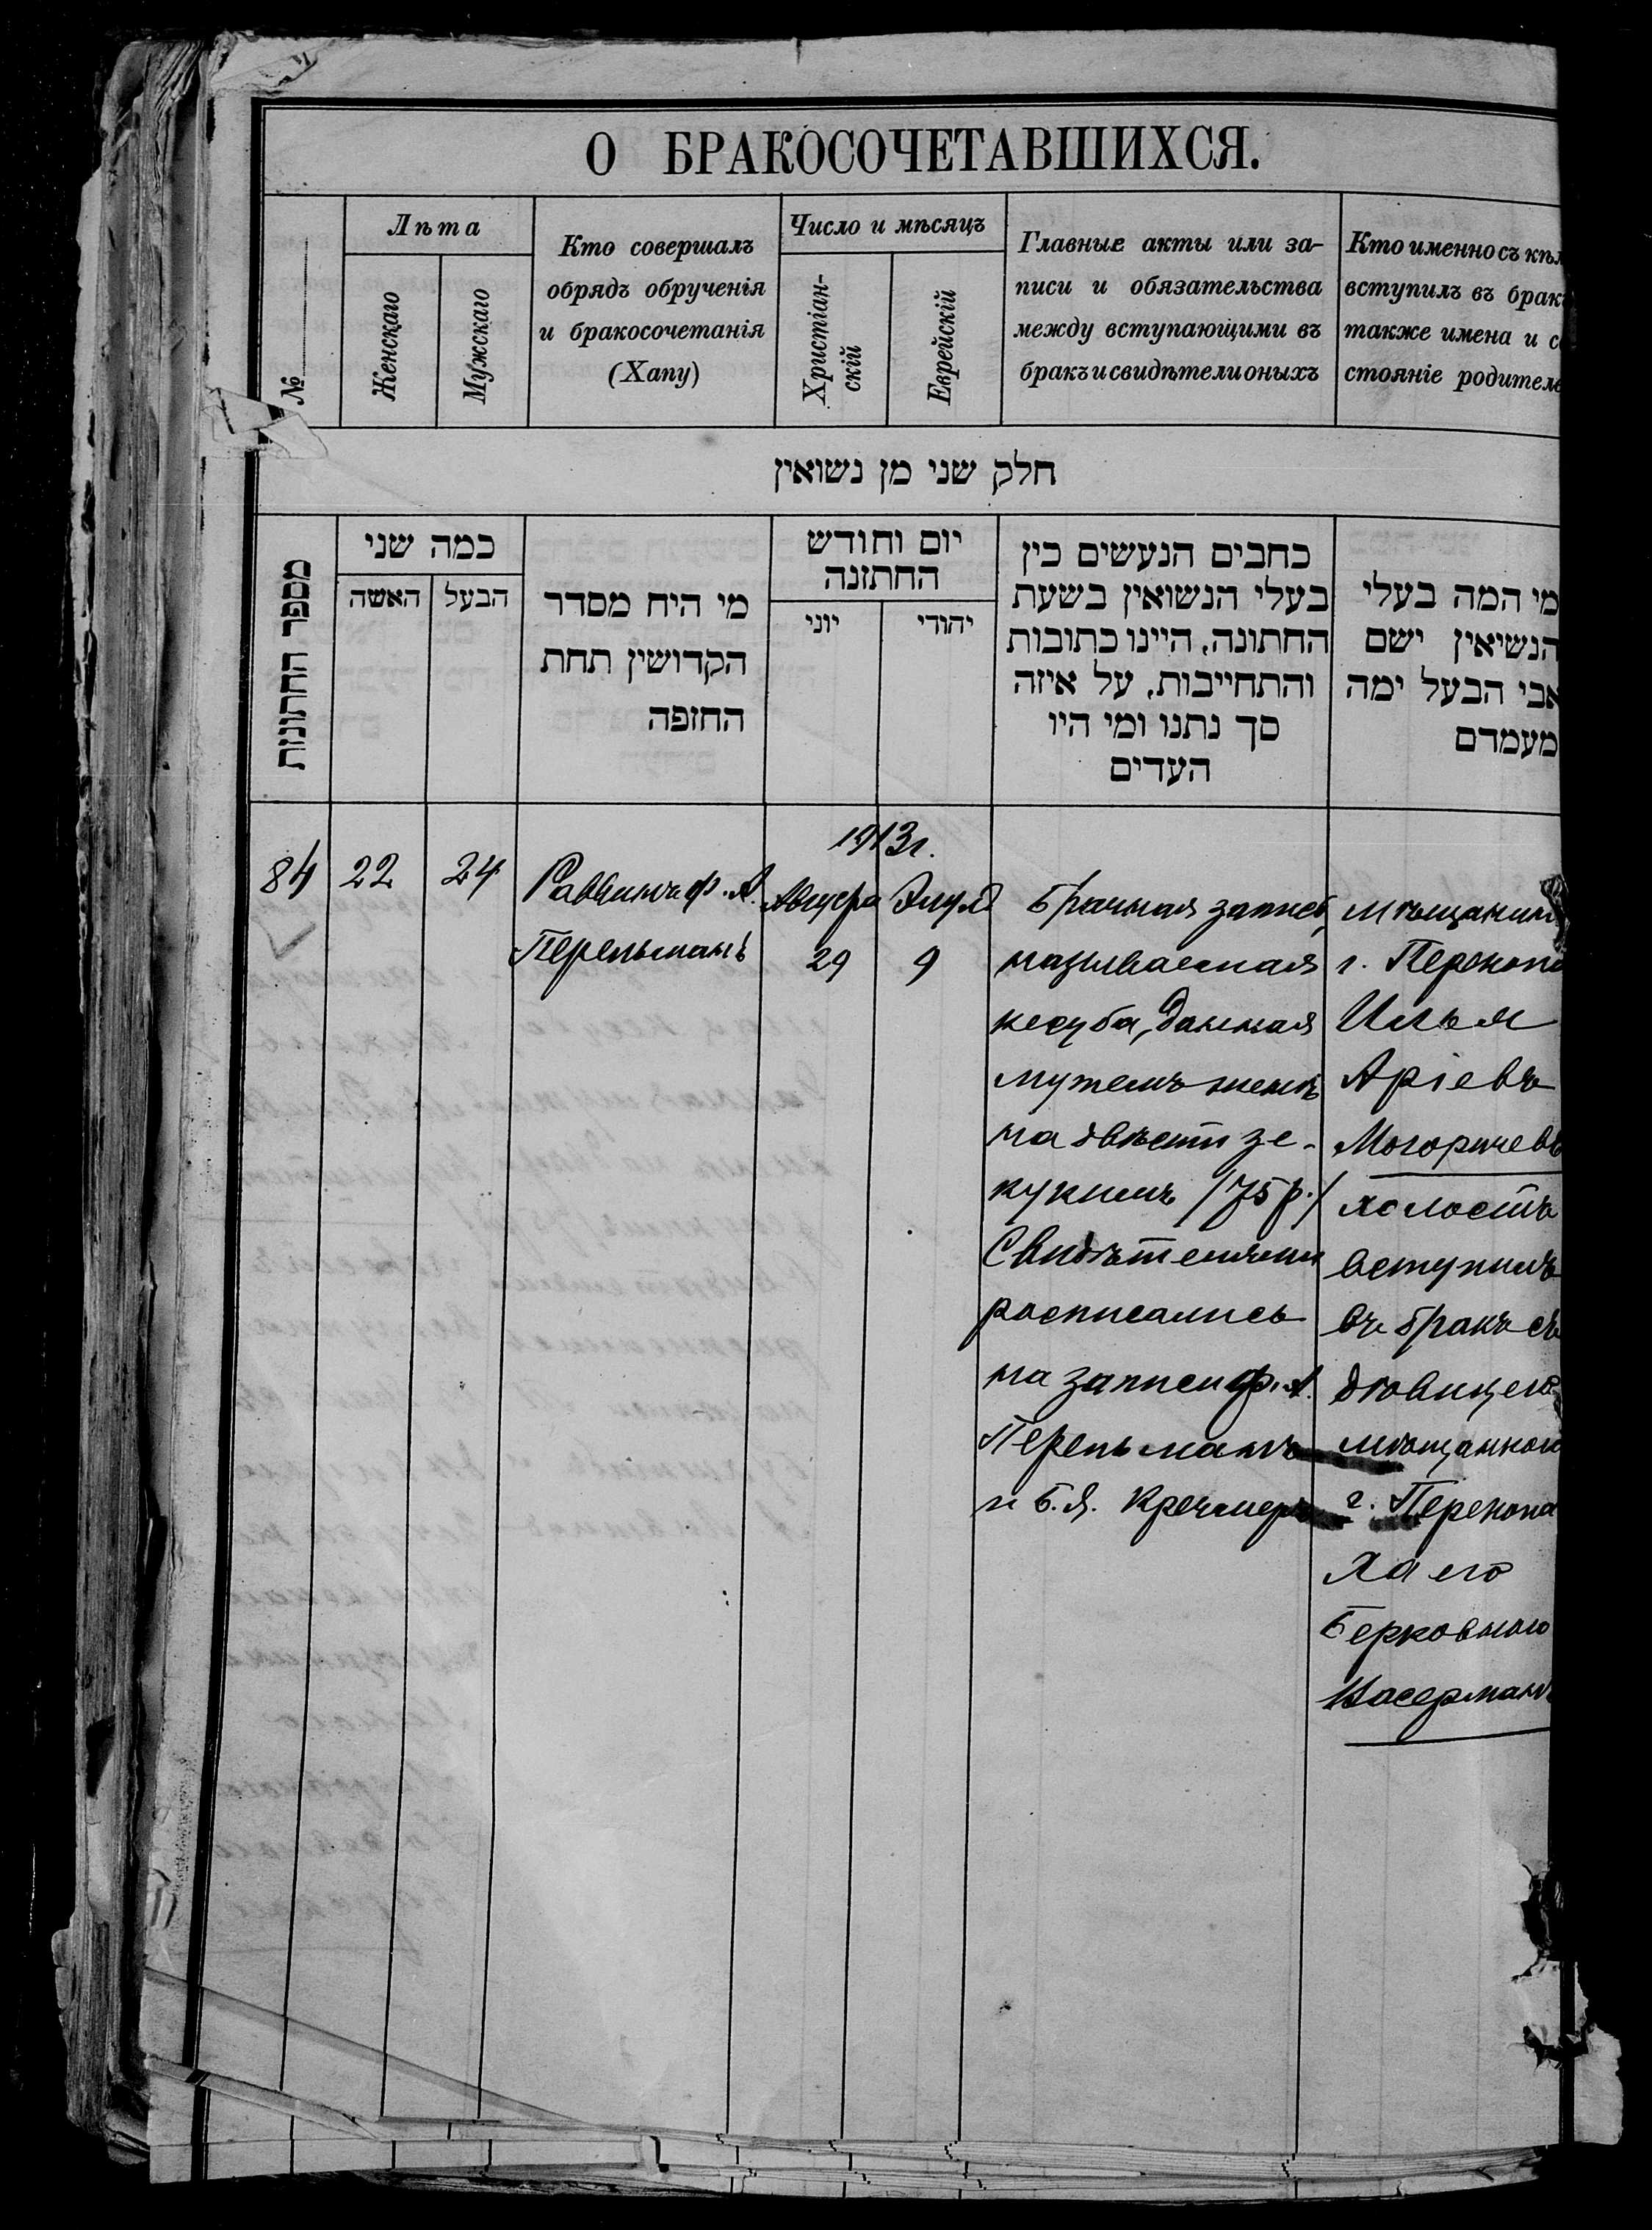 О БРАКОСОЧЕТАВШИХСЯ.
№
Лѣта
Женскаго
Мужскаго
Кто совершалъ
обрядъ обрученія
и бракосочетанія
(Хапу)
Число и мѣсяцъ
Христіан-
скій
Еврейскій
Главные акты или за-
писи и обязательства
между вступающими въ
бракъ и свидѣтели оныхъ
Кто именно съ кѣм
вступилъ въ брак
также имена и с
стояніе родителе
חלק שני מן נשואין
מספר החתונות
כמה שני
האשה
הבעל
מי היח מסדר
הקדושין תחת
החופה
יום וחודש
החתונה
יוני
יהודי
כתבים הנעשים בין
בעלי הנשואין בשעת
החתונה, היינו כתובות
והתחייבות, על איזה
סך נתנו ומי היו
העדים
מי המה בעלי
הנשיאין ישם
אבי הבעל ימה
מעמדם
84
22
24
Раввинъ Ф. А.
Перельманъ
1913 г.
Августа
29
Элула
9
Брачная запись
называемая
кесуба, данная
мужемъ женѣ
на двѣсти зе-
кукимъ /75 р./
Свидѣтелями
росписались
на записи Ф. А.
Перельманъ
и Б. Я. Кречмеръ
мѣщанинъ
г. Перекопа
Илья
Аріевъ
Могоричевъ
холостъ
вступилъ
въ бракъ съ
дѣвицею
мѣщанкою
г. Перекопа
Хаею
Берковною
Косерманъ